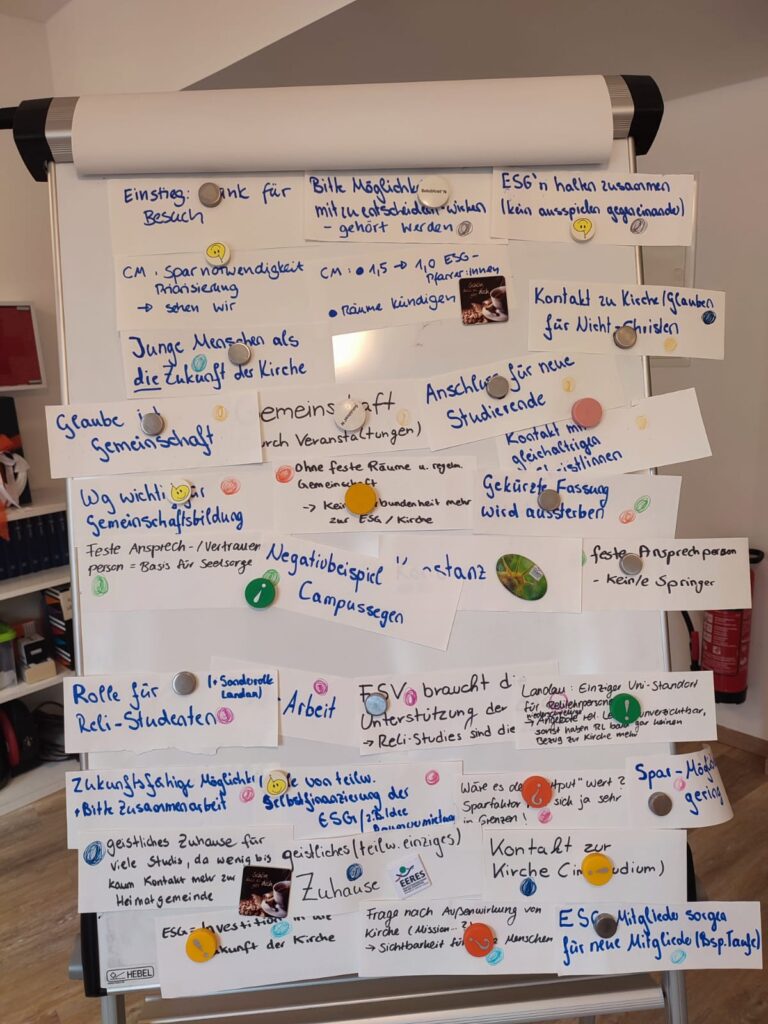 Einstieg: Dank für
Besuch
Bitte Möglichk
mitzuentscheiden/-wirken
- gehört werden
ESG'n halten zusammen
(kein ausspielen gegeneinander)
CM: Sparnotwendigkeit
Priorisierung
→ sehen wir
CM: • 1,5 → 1,0 ESG-
Pfarrer:innen
• Räume kündigen
Kontakt zu Kirche/Glauben
für Nicht-Christen
Junge Menschen als
die Zukunft der Kirche
Glaube
Gemeinschaft
Gemeinschaft
durch Veranstaltungen)
Anschluss für neue
Studierende
Kontakt mit
gleichaltrigen
Wg wichtig für
Gemeinschaftsbildung
Ohne feste Räume u. regelm.
Gemeinschaft
→ Keine Verbundenheit mehr
zur ESG / Kirche
Gekürzte Fassung
wird aussterben
Feste Ansprech-/Vertrauen
person = Basis für Seelsorge
Negativbeispiel
Campussegen
Konstanz
feste Ansprechperson
- Kein/e Springer
Rolle für
Reli-Studenten
(+ Sonderrolle
Landau)
Arbeit
ESG braucht d
Unterstützung der
→ Reli-Studies sind die
Landau: Einziger Uni-Standort
für
→ Angebote rel. unverzichtbar,
sonst haben RL bald gar keinen
Bezug zur Kirche mehr
Zukunftsfähige Möglichk
+ Bitte Zusammenarbeit
von teilw.
Selbstfinanzierung der
ESG / z.B. Idee
Raumvermietung
Wäre es de output" wert?
Sparfaktor sich ja sehr
in Grenzen!
Spar-Mög
gering
geistliches Zuhause für
viele Studis, da wenig bis
kaum Kontakt mehr zur
Heimatgemeinde
geistliches (teilw. einziges)
Zuhause
EERES
Kontakt zur
Kirche (im Studium)
ESG = Investition in die
Zukunft der Kirche
Frage nach Außenwirkung von
Kirche (Mission...?)
→ Sichtbarkeit für Menschen
ESG Mitglieder sorgen
für neue Mitglieder (Bsp. Taufe)
HEBEL